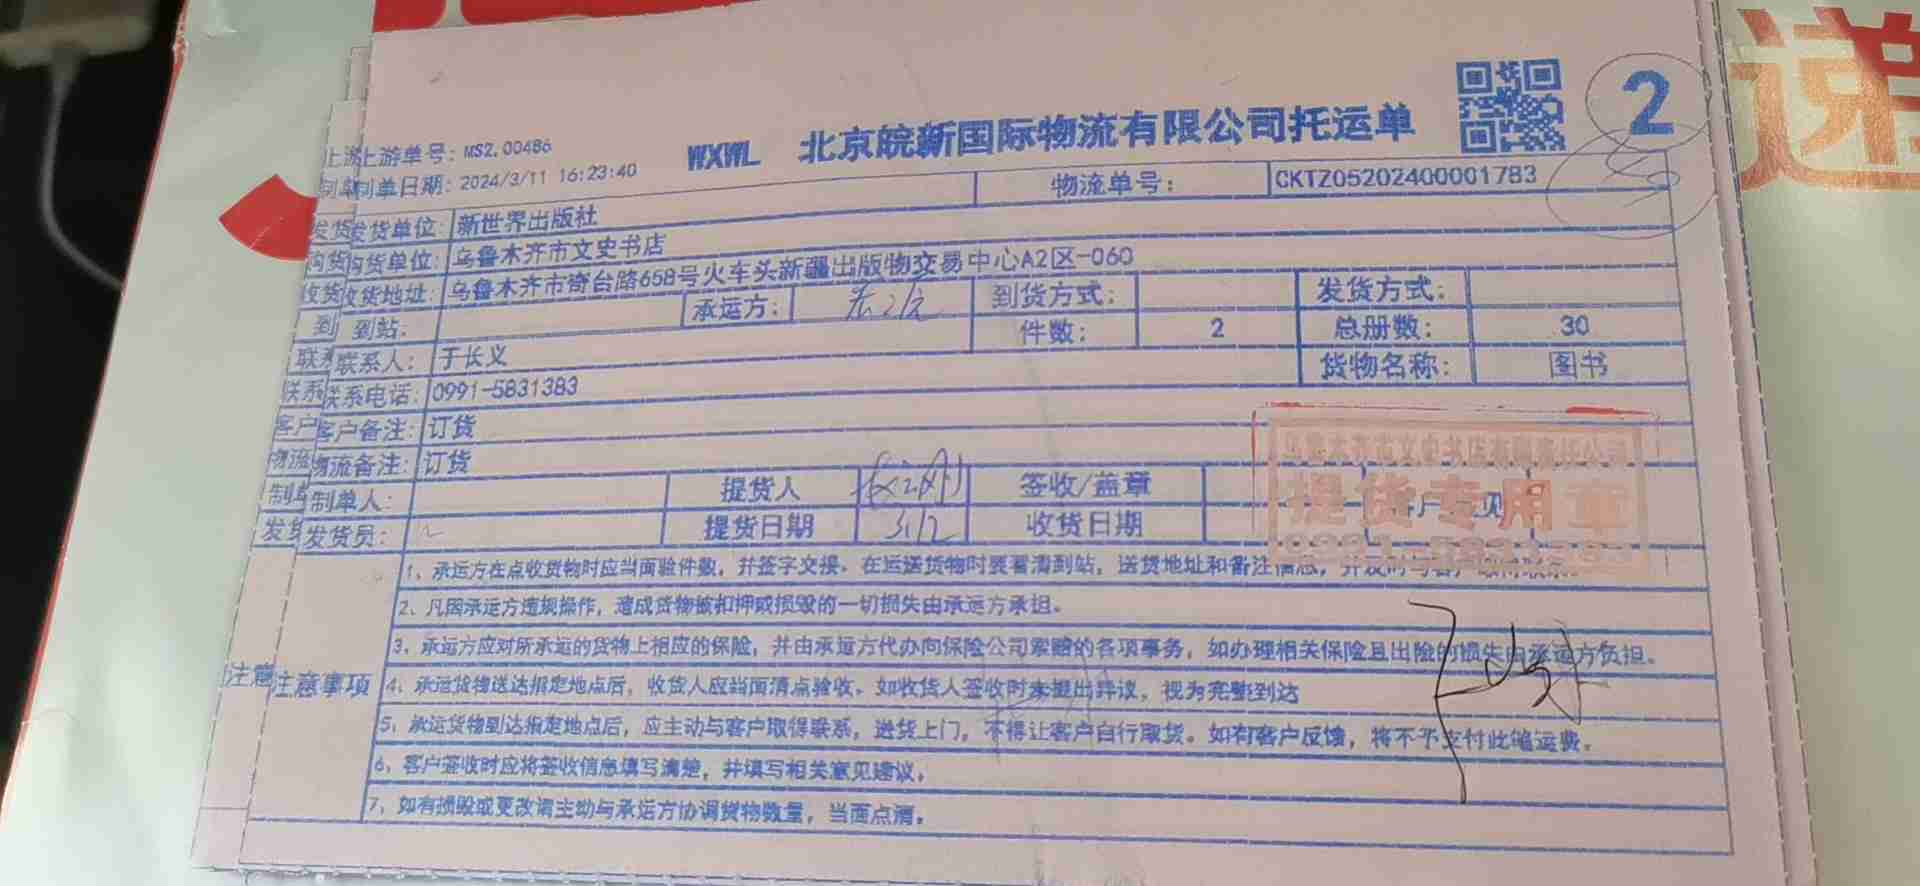 上游单号: MS2.00486
WXWL 北京皖新国际物流有限公司托运单
2
制单日期: 2024/3/11 16:23:40
物流单号: CKTZ05202400001783
发货单位: 新世界出版社
购货单位: 乌鲁木齐市文史书店
收货地址: 乌鲁木齐市奇台路658号火车头新疆出版物交易中心A2区-060
到站: 承运方: 到货方式: 发货方式:
件数: 2 总册数: 30
联系人: 于长义 货物名称: 图书
联系电话: 0991-5831383
客户备注: 订货
物流备注: 订货
制单人: 提货人 签收/盖章
发货员: 提货日期 3.12 收货日期
乌鲁木齐市文史书店有限责任公司
提货专用章
0991-5831383
注意事项
1、承运方在点收货物时应当面验件数，并签字交接。在运送货物时要看清到站，送货地址和备注信息，
2、凡因承运方违规操作，造成货物被扣押或损毁的一切损失由承运方承担。
3、承运方应对所承运的货物上相应的保险，并由承运方代办向保险公司索赔的各项事务，如办理相关保险且出险的损失由承运方负担。
4、承运货物送达指定地点后，收货人应当面清点验收。如收货人签收时未提出异议，视为完整到达
5、承运货物到达指定地点后，应主动与客户取得联系，送货上门，不得让客户自行取货。如有客户反馈，将不予支付此笔运费。
6、客户签收时应将签收信息填写清楚，并填写相关意见建议。
7、如有损毁或更改请主动与承运方协调货物数量，当面点清。